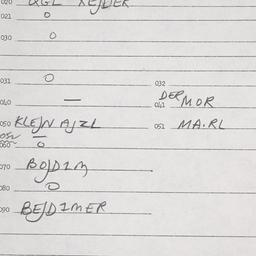 020 QGL KEJLIER
021 O
030 O
031 O 032
040 — 041 DER MOR
050 KLEJN AJZL 051 MA.RL
050 —
060 O
070 BOJDIM
080 O
090 BEJDIMER